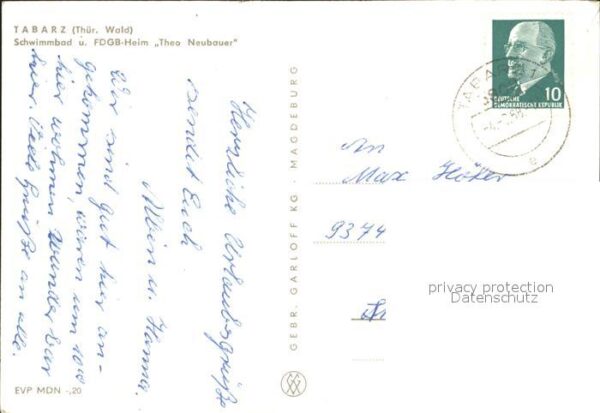 TABARZ (Thür. Wald)
Schwimmbad u. FDGB-Heim „Theo Neubauer"
Herzliche Urlaubsgrüße
sendet Euch
Albin u. Hanna.
Wir sind gut hier an-
gekommen, waren um 10 00
hier wohnen wunderbar
hier. Viele Grüße an alle.
EVP MDN -,20
GEBR. GARLOFF KG · MAGDEBURG
10
DEUTSCHE
DEMOKRATISCHE REPUBLIK
TABARZ
e
An
Max
9374
privacy protection
Datenschutz